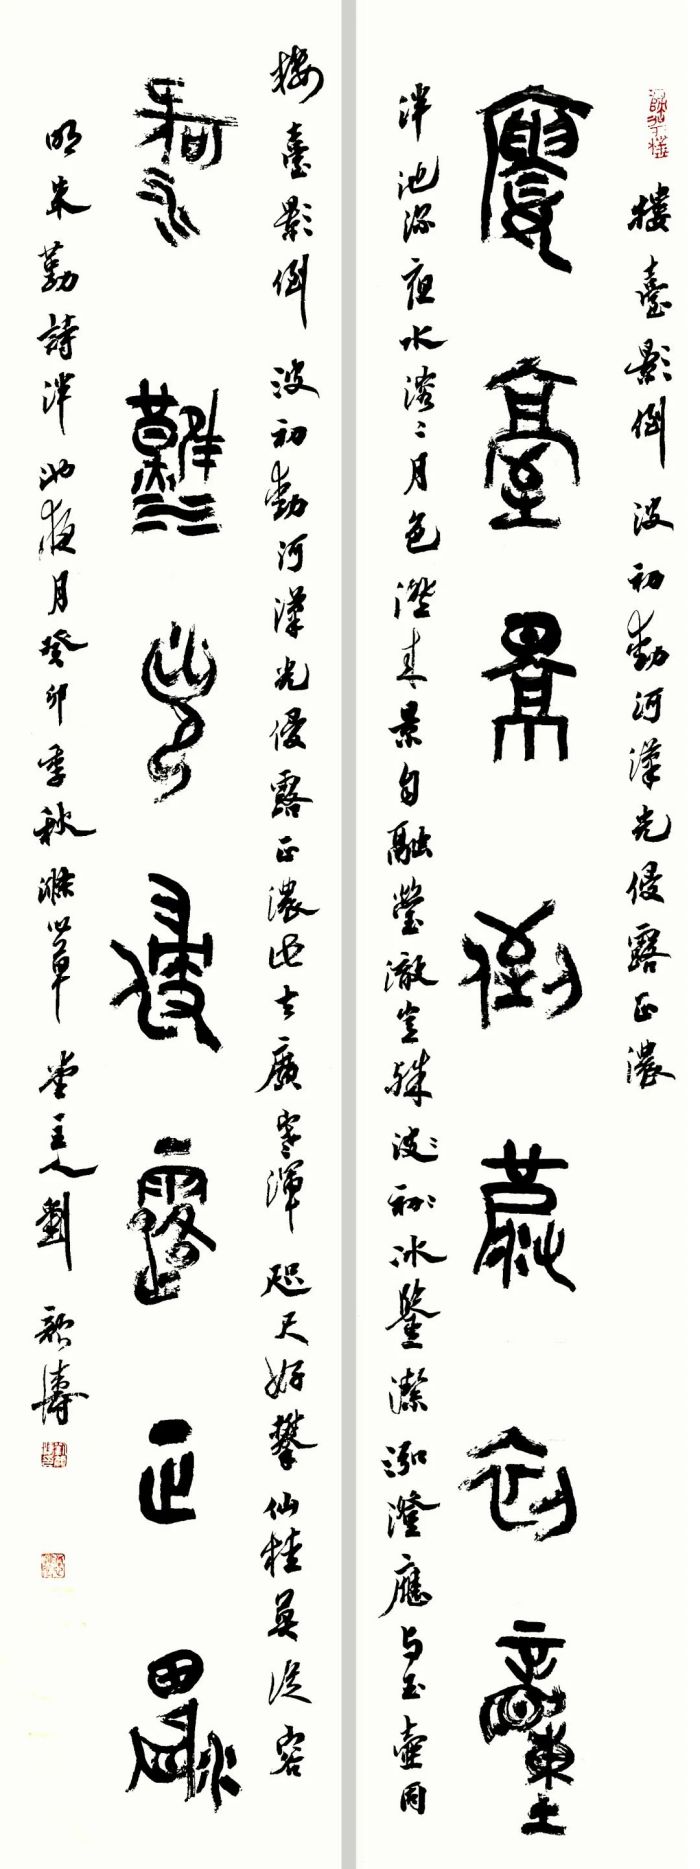 樓臺影倒波初動河漢光侵露正濃
樓臺景倒波初動
泮池深夜水溶〻月色澄來景自融瑩澈豈殊波初冰鑒潔泓澄應與玉壺同
樓臺影倒波初動河漢光侵露正濃此去廣寒渾咫尺好攀仙桂莫從容
河漢光侵露正濃
明朱勤詩泮池夜月癸卯季秋草堂主人劉濤